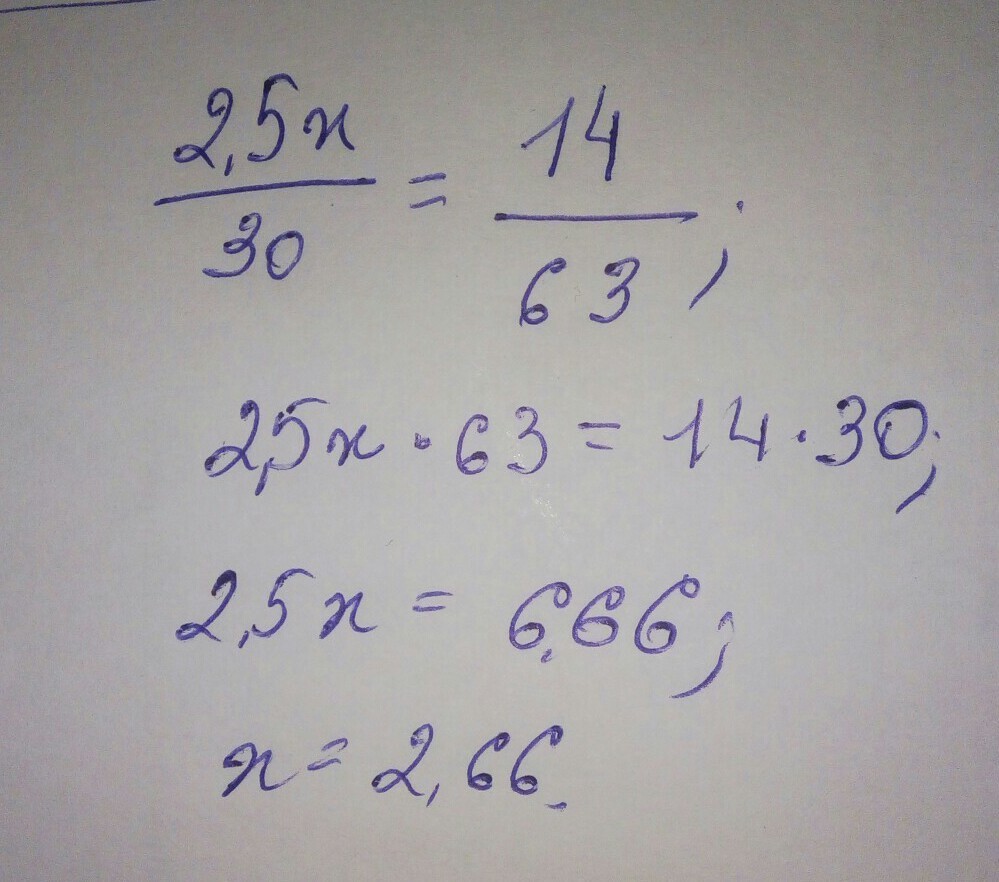 2,5x/30 = 14/63;
2,5x · 63 = 14 · 30;
2,5x = 6,66;
x = 2,66.